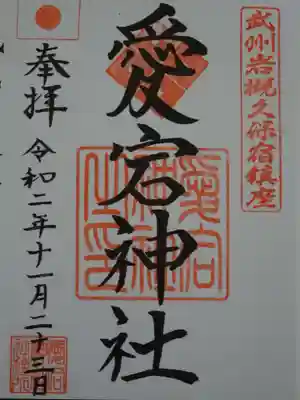 武州岩槻久保宿鎮座
愛宕神社
奉拝
令和二年十一月二十三日